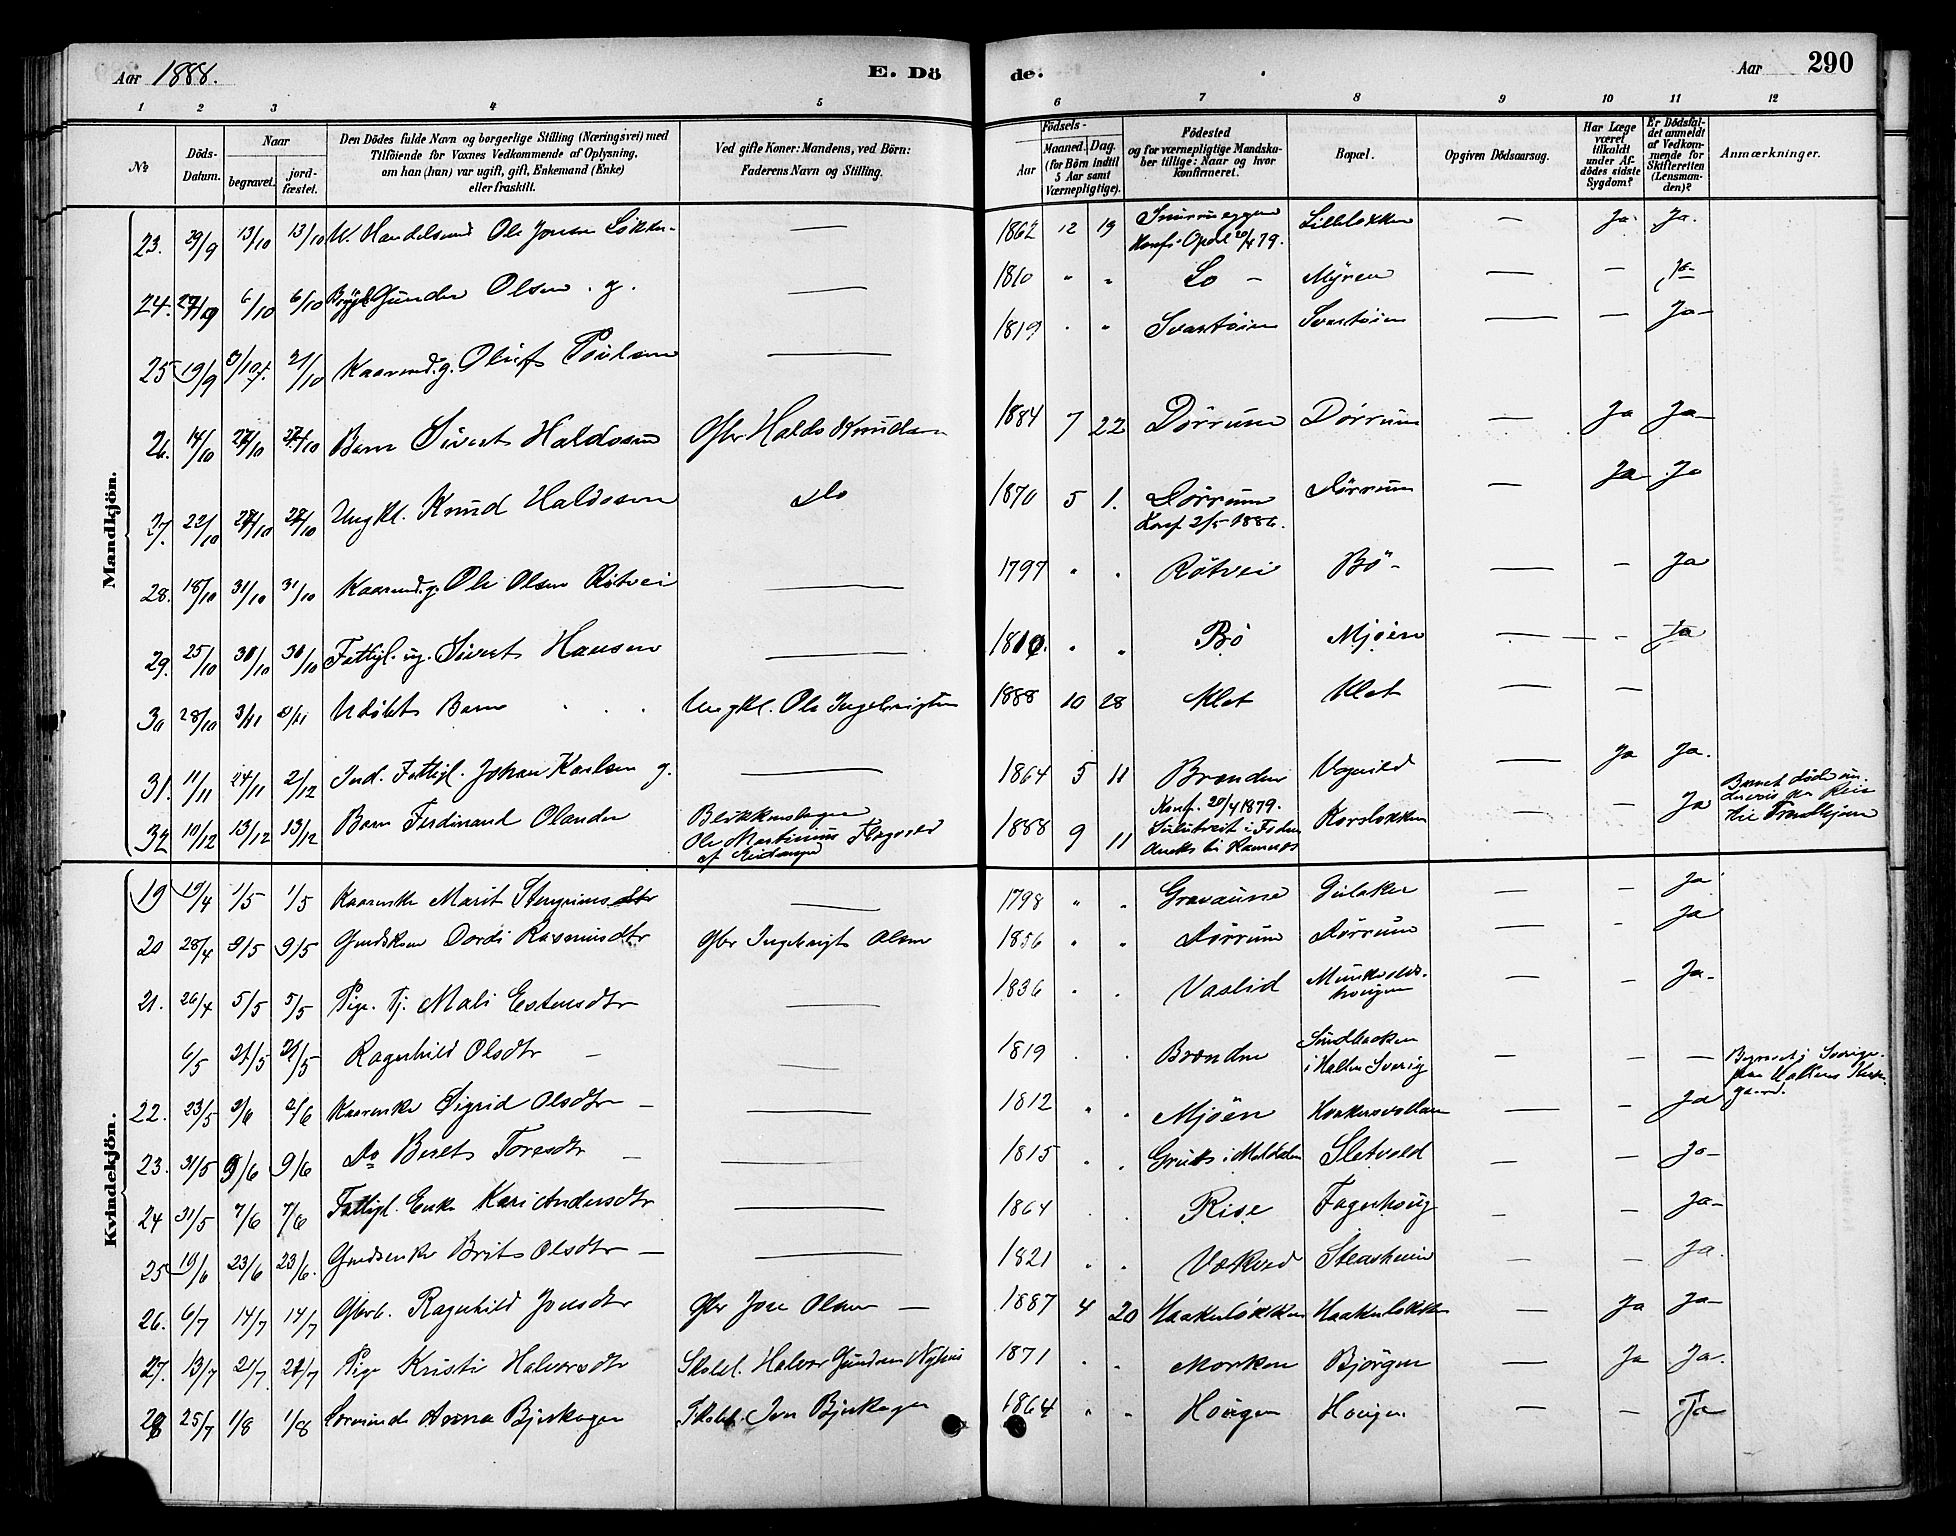 Aar 1888.
E. Dö
de.
Aar
290
1 2 3 4 5 6 7 8 9 10 11 12
No
Döds-
Datum.
Naar
begravet.
jord-
fæstet.
Den Dödes fulde Navn og borgerlige Stilling (Næringsvei) med
Tilföiende for Voxnes Vedkommende af Oplysning,
om han (hun) var ugift, gift, Enkemand (Enke)
eller fraskilt.
Ved gifte Koner: Mandens, ved Börn:
Faderens Navn og Stilling.
Födsels-
Aar
Maaned. Dag.
(for Börn indtil
5 Aar samt
Værnepligtige).
Födested
og for værnepligtige Mandska-
ber tillige: Naar og hvor
konfirmeret.
Bopæl.
Opgiven Dödsaarsag.
Har Læge
været
tilkaldt
under Af-
dödes sidste
Sygdom?
Er Dödsfal-
det anmeldt
af Vedkom-
mende for
Skifteretten
(Lensman-
den)?
Anmærkninger.
Mandkjön.
23. 29/9 13/10 13/10 Handelsmd Ole Jonsen Løkken — 1862 12 19 Konf. Opdal 20/4 79. Lilleløkken — Ja. Ja.
24. 6/10 6/10 Gunder Olsen . g. — 1810 " " Lo — Myren — — Ja
25 19/9 2/10 Kaarmd. g. Oluf Poulsen — 1819 " " Svartøien Svartøien — — Ja
26. 14/10 27/10 27/10 Barn Sivert Haldosen Gbr Haldo Knudsen 1884 7 22 Dörrum Dörrum — Ja Ja
27. 22/10 27/10 27/10 Ungkl. Knud Haldosen Do 1870 5 1. Dörrum Dörrum — Ja Ja
Konf. 2/5 1886.
28. 18/10 31/10 31/10 Kaarmd. g. Ole Olsen Røtvei — 1797 " " Røtvei Bö — — Ja
29. 25/10 30/10 30/10 Fattigl. ug. Sivert Hansen — 1810. " " Bö Mjøen — - Ja
30 28/10 3/11 3/11 Udöbt Barn Ungkl. Ole Ingebrigtsen 1888 10 28 Klet Klet — —
31. 11/11 24/11 2/12 Ind. Fattigl. Johan Karlsen g. — 1864 5 11 Brænden Vognild — Ja Ja.
Konf. 20/4 1879.
32 10/12 13/12 13/12 Barn Ferdinand Olander Blikkenslager
Ole Martinius
af 1888 9 11 Korsløkken — — Ja Barnet døde un-
til Trondhjem
Kvindekjön.
19 19/4 1/5 1/5 Kaarenke Marit — 1798 " " Gravaune — — Ja
20 28/4 9/5 9/5 Gmdskone Dordi Rasmusdtr Gbr Ingebrigt Olsen 1856 " " Dörrum Dörrum — — Ja
21. 26/4 5/5 5/5 Pige. Tj. Mali Estensdtr — 1836 " " Vaslid — — Ja
6/5 21/5 21/5 Ragnhild Olsdtr — 1819 " " Brænden
i Hallen Sverig — — — Begravet i Sverige
paa Hallens Kirke-
gaard.
22. 23/5 2/6 2/6 Kaarenke Sigrid Olsdtr — 1812 " " Mjøen — — Ja
23. 31/5 9/6 9/6 Do Beret Toresdtr — 1815 " " i Meldalen Sletvold — — Ja
24 31/5 7/6 7/6 Fattigl. Enke Kari Andersdtr — 1864 " " Rise Fagerhoug — — Ja
25 19/6 23/6 23/6. Gmdsenke Brit Olsdtr — 1821 " " — — Ja.
26. 6/7 14/7 14/7 Gbrb. Ragnhild Jonsdtr Gbr Jon Olsen — 1887 4 20 Haakenløkken Haakenløkken — Ja Ja
27. 13/7 21/7 21/7 Pige Kristi Halvorsdtr Skolel. Halvor Gundersen 1871 " " Morken Bjørgen — Ja Ja.
28 25/7 1/8 1/8 Anna Bjerkager Skolel. Iver Bjerkager 1864 " " Hougen Hougen — — Ja